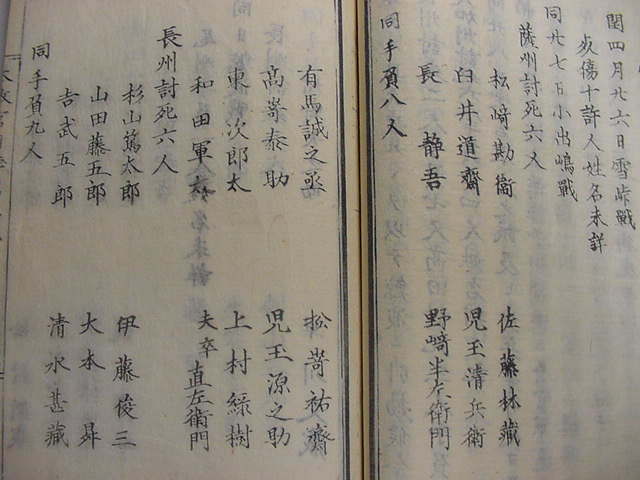 閏四月廿六日雪峠戦
死傷十許人姓名未詳
同廿七日小出嶋戦
薩州討死六人
松﨑勘衞 佐藤林蔵
臼井道齋 児玉清兵衛
長 静吾 野﨑半左衛門
同手負八人
有馬誠之丞 松嵜祐齋
高嵜泰助 児玉源之助
東次郎太 上村緑樹
和田軍六 夫卒 直左衛門
長州討死六人
杉山篤太郎 伊藤俊三
山田藤五郎 大本昇
吉武五郎 清水甚蔵
同手負九人